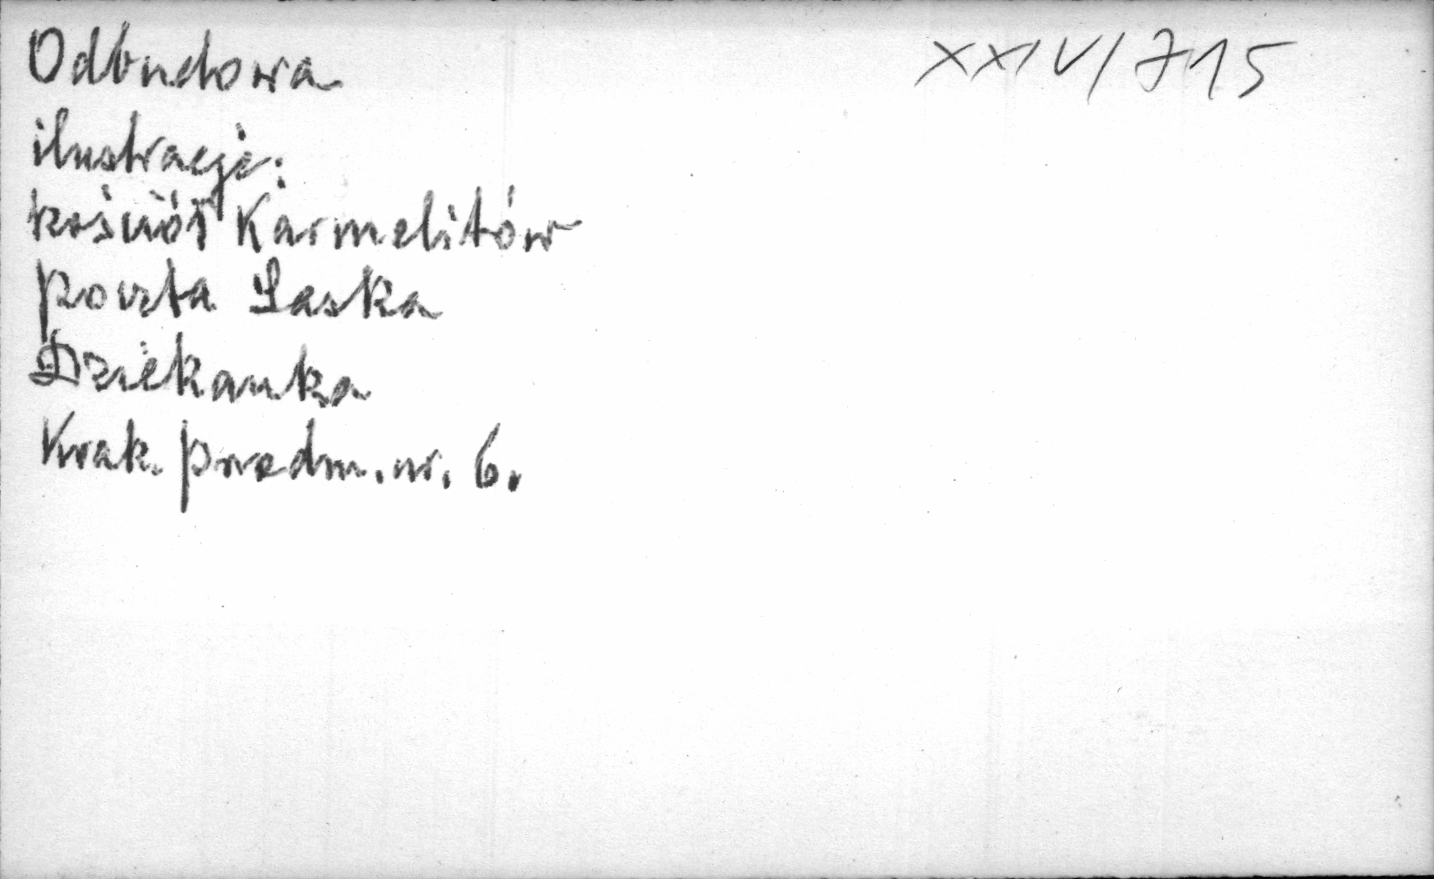 Odbudowa
XXIV/715
ilustracje:
kościół Karmelitów
poczta Saska
Dziekanka
Krak. przedm. nr. 6.